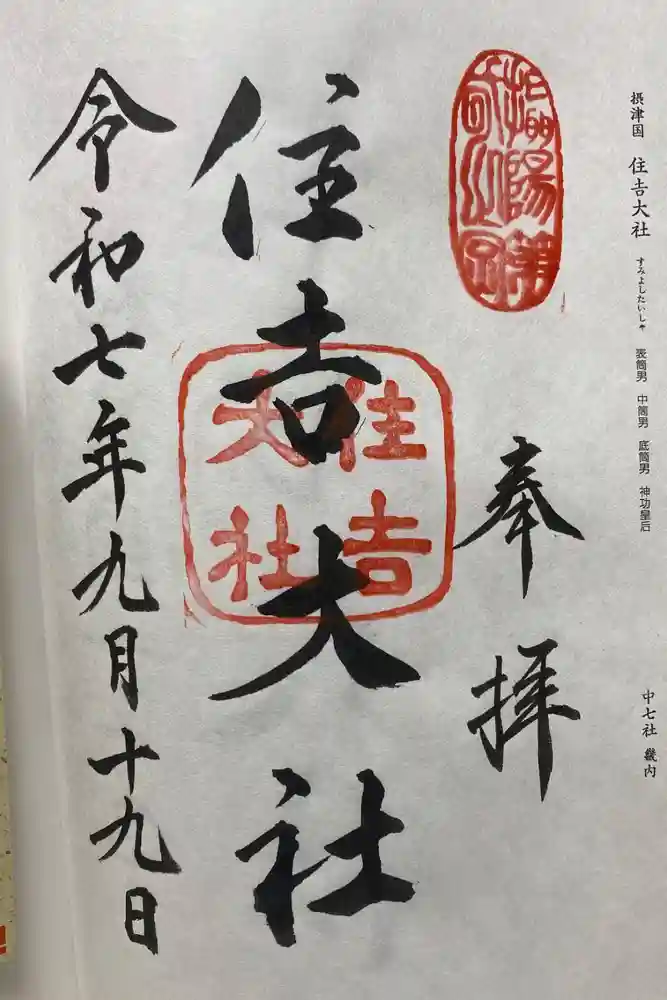 摂津国 住吉大社 すみよしたいしゃ 表筒男 中筒男 底筒男 神功皇后
中七社 畿内
奉拝
住吉大社
住吉
大社
令和七年九月十九日